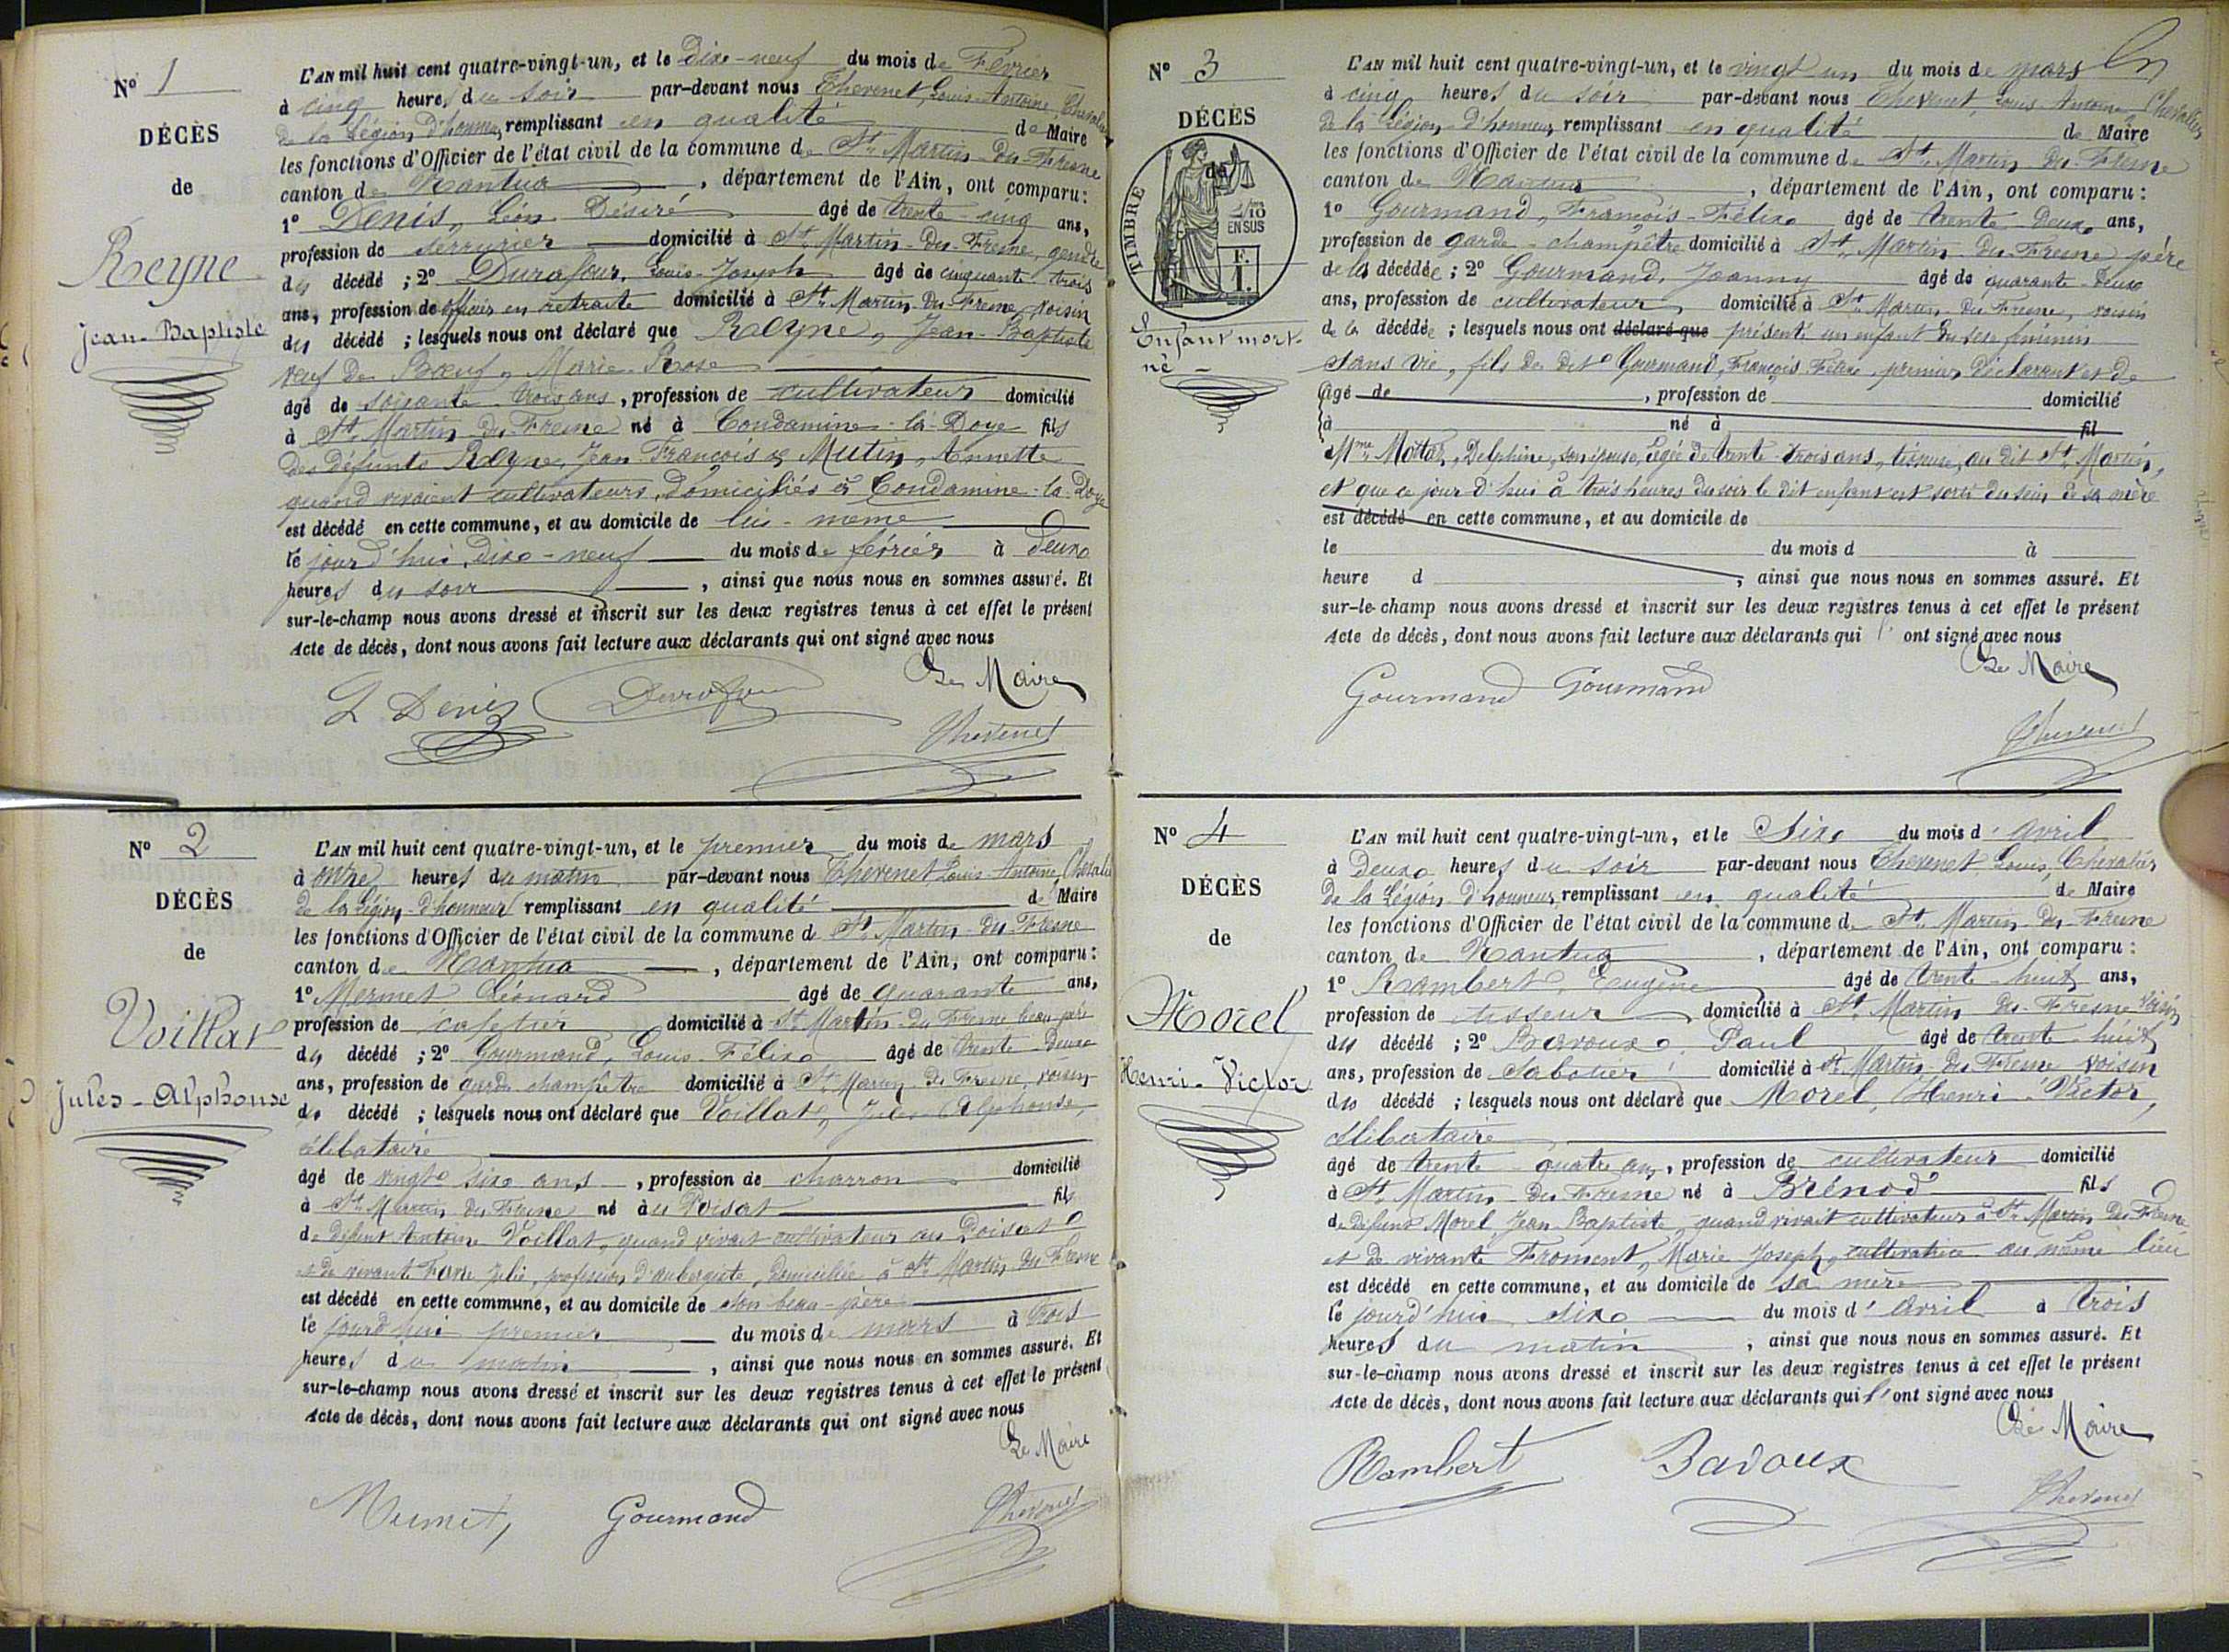 N° 1
DÉCÈS
de
Reyne
Jean-Baptiste
L'AN mil huit cent quatre-vingt-un, et le Dix-neuf du mois de Février
à cinq heures du soir par-devant nous Thevenet, Louis-Antoine, Chevalier
de la Légion d'honneur, remplissant en qualité de Maire
les fonctions d'Officier de l'état civil de la commune de St Martin-du-Fresne
canton de Nantua, département de l'Ain, ont comparu:
1° Denis, Léon Désiré âgé de trente-cinq ans,
profession de serrurier domicilié à St Martin-du-Fresne, gendre
du décédé ; 2° Durafour, Louis-Joseph âgé de cinquante-trois
ans, profession de officier en retraite domicilié à St Martin du Fresne, voisin
du décédé ; lesquels nous ont déclaré que Reyne, Jean-Baptiste
veuf de Bœuf, Marie-Rose
âgé de soixante-trois ans, profession de cultivateur domicilié
à St Martin-du-Fresne né à Condamine-la-Doye fils
des défunts Reyne, Jean-François & Mutin, Annette
quand vivaient cultivateurs, domiciliés à Condamine-la-Doye
est décédé en cette commune, et au domicile de lui-même
le jourd'hui, dix-neuf du mois de février à deux
heures du soir, ainsi que nous nous en sommes assuré. Et
sur-le-champ nous avons dressé et inscrit sur les deux registres tenus à cet effet le présent
Acte de décès, dont nous avons fait lecture aux déclarants qui ont signé avec nous
Le Maire
L Denis Durafour
Thevenet
N° 2
DÉCÈS
de
Voillat
Jules-Alphonse
L'AN mil huit cent quatre-vingt-un, et le premier du mois de mars
à onze heures du matin par-devant nous Thevenet Louis-Antoine, Chevalier
de la Légion d'honneur remplissant en qualité de Maire
les fonctions d'Officier de l'état civil de la commune de St Martin-du-Fresne
canton de Nantua, département de l'Ain, ont comparu:
1° Mermet Léonard âgé de quarante ans,
profession de cafetier domicilié à St Martin-du-Fresne beau-père
du décédé ; 2° Gourmand, Louis-Félix âgé de trente-deux
ans, profession de garde champêtre domicilié à St Martin du Fresne, voisin
du décédé ; lesquels nous ont déclaré que Voillat, Jules Alphonse,
célibataire
âgé de vingt-six ans, profession de charron domicilié
à St Martin du Fresne né au Poizat fils
de défunt Antoine Voillat, quand vivait cultivateur au Poizat
et de vivante Julie, profession d'aubergiste, domiciliée à St Martin du Fresne
est décédé en cette commune, et au domicile de son beau-père
le jourd'hui premier du mois de mars à trois
heures du matin, ainsi que nous nous en sommes assuré. Et
sur-le-champ nous avons dressé et inscrit sur les deux registres tenus à cet effet le présent
Acte de décès, dont nous avons fait lecture aux déclarants qui ont signé avec nous
Le Maire
Mermet, Gourmand Thevenet
N° 3
DÉCÈS
de
TIMBRE
2/10
EN SUS
F.
1.
Enfant mort-
né
L'AN mil huit cent quatre-vingt-un, et le vingt un du mois de mars
à cinq heures du soir par-devant nous Thevenet, Louis Antoine, Chevalier
de la Légion d'honneur, remplissant en qualité de Maire
les fonctions d'Officier de l'état civil de la commune de St Martin du Fresne
canton de Nantua, département de l'Ain, ont comparu:
1° Gourmand, François-Félix âgé de trente-deux ans,
profession de garde-champêtre domicilié à St Martin du Fresne père
de la décédée ; 2° Gourmand, Joanny âgé de quarante-deux
ans, profession de cultivateur domicilié à St Martin du Fresne, voisin
de la décédée ; lesquels nous ont déclaré que présenté un enfant du sexe féminin
sans vie, fils du dit Gourmand, François Félix, premier déclarant et de
âgé de, profession de domicilié
à né à fil
Mme Mottet, Delphine, son épouse, âgée de trente-trois ans, tisseuse, au dit St Martin,
et que ce jour d'hui à trois heures du soir le dit enfant est sorti du sein de sa mère
est décédé en cette commune, et au domicile de
le du mois d à
heure d, ainsi que nous nous en sommes assuré. Et
sur-le-champ nous avons dressé et inscrit sur les deux registres tenus à cet effet le présent
Acte de décès, dont nous avons fait lecture aux déclarants qui l'ont signé avec nous
Le Maire
Gourmand Gourmand
Thevenet
N° 4
DÉCÈS
de
Morel
Henri-Victor
L'AN mil huit cent quatre-vingt-un, et le Six du mois d'avril
à Deux heures du soir par-devant nous Thevenet, Louis, Chevalier
de la Légion d'honneur, remplissant en qualité de Maire
les fonctions d'Officier de l'état civil de la commune de St Martin du Fresne
canton de Nantua, département de l'Ain, ont comparu :
1° Rambert, Eugène âgé de trente-huit ans,
profession de tisseur domicilié à St Martin du Fresne voisin
du décédé ; 2° Bavoux, Paul âgé de trente-huit
ans, profession de Sabotier domicilié à St Martin du Fresne voisin
du décédé ; lesquels nous ont déclaré que Morel, Henri-Victor,
célibataire
âgé de trente-quatre ans, profession de cultivateur domicilié
à St Martin du Fresne né à Brénod fils
de défunt Morel, Jean Baptiste, quand vivait cultivateur à St Martin du Fresne
et de vivante Froment, Marie Joseph, cultivatrice au même lieu
est décédé en cette commune, et au domicile de sa mère
le jourd'hui six du mois d'avril à trois
heures du matin, ainsi que nous nous en sommes assuré. Et
sur-le-champ nous avons dressé et inscrit sur les deux registres tenus à cet effet le présent
Acte de décès, dont nous avons fait lecture aux déclarants qui l'ont signé avec nous
Le Maire
Rambert Bavoux
Thevenet